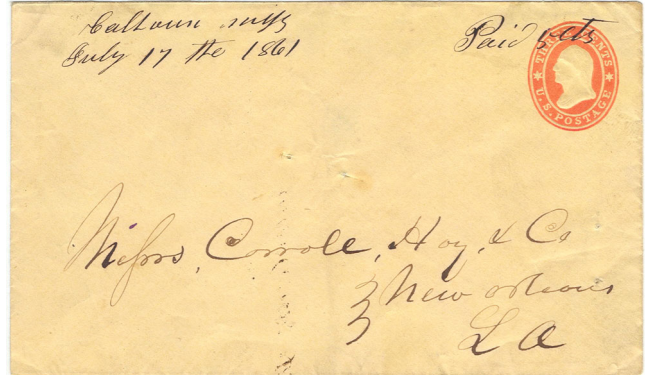 Calhoun Miss
July 17 the 1861
Paid 5 cts
THREE CENTS
U.S. POSTAGE
Messrs, Carroll, Hoy, & Co
New Orleans
LA